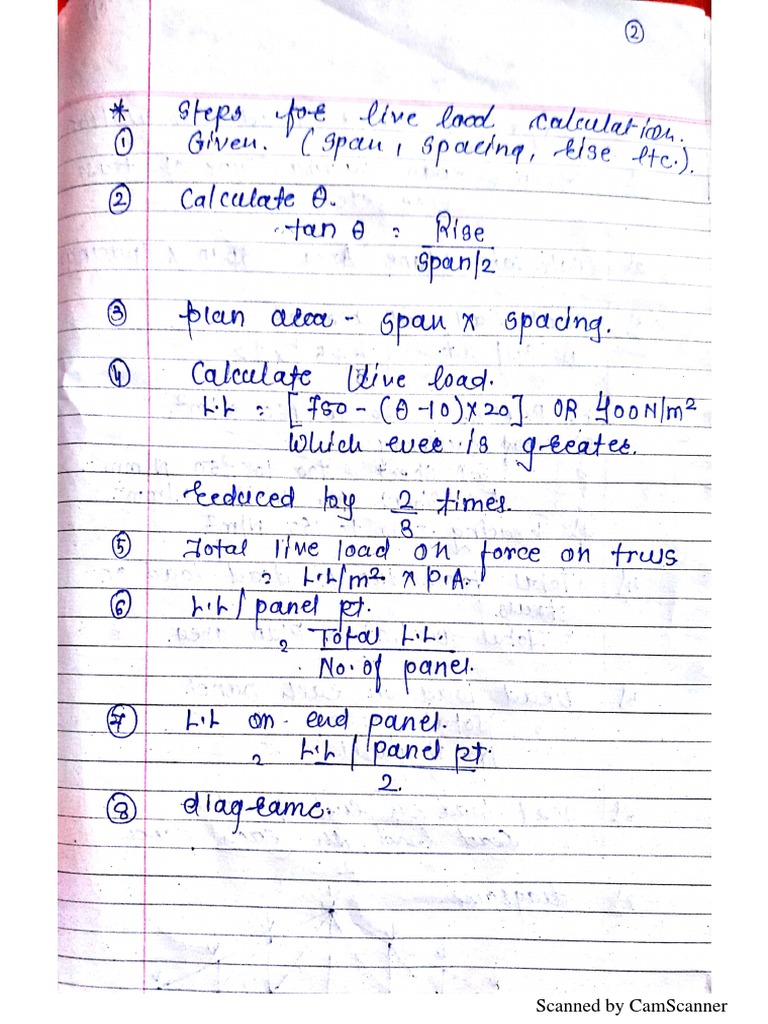 ②
* Steps for live load calculation.
① Given. (span, spacing, rise etc.).
② Calculate θ.
tan θ = Rise
span/2
③ plan area - span x spacing.
④ Calculate live load.
L.L = [750 - (θ-10)x20] OR 400N/m²
Which ever is greater.
Reduced by 2/3 times.
⑤ Total live load on force on truss
= L.L/m² x P.A.
⑥ L.L/panel pt.
= Total L.L.
No. of panel.
⑦ L.L on end panel.
= L.L/panel pt.
2.
⑧ diagrame.
Scanned by CamScanner